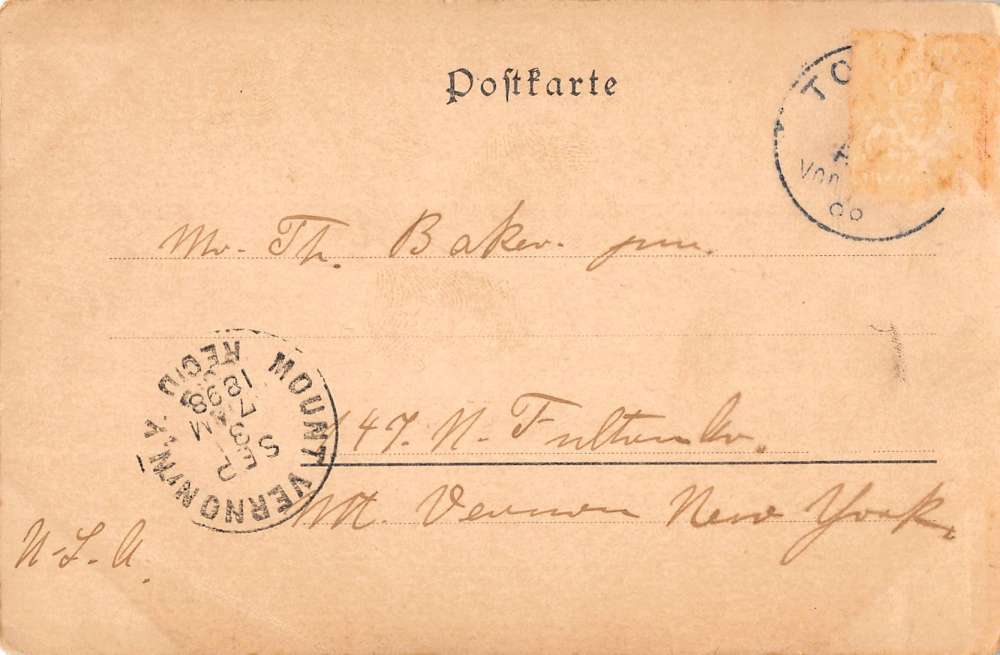 Postkarte
TO
Von
98
Mr. Th. Baker. jun.
147. N. Fulton Av.
Mt. Vernon New York.
U.S.A.
MOUNT VERNON, N.Y. REC'D.
SEP
3
7 AM
1898